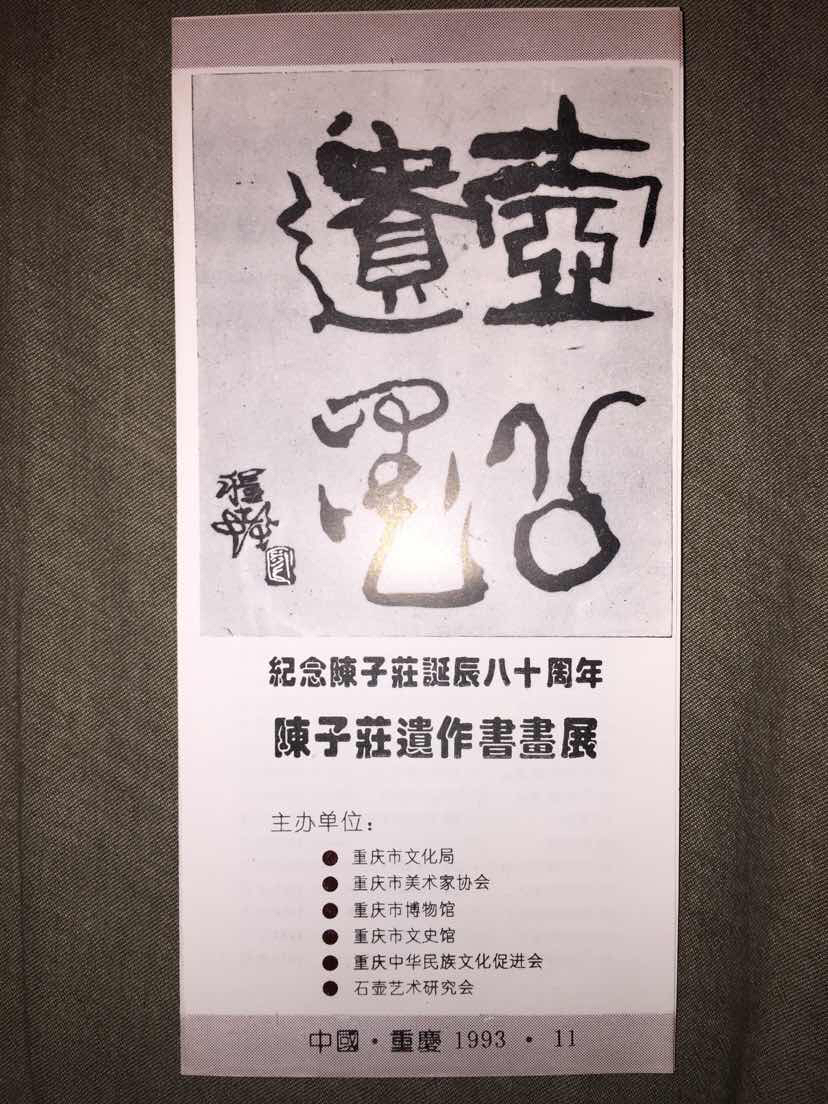 壺公
遺墨
紀念陳子莊誕辰八十周年
陳子莊遺作書畫展
主办单位：
● 重庆市文化局
● 重庆市美术家协会
● 重庆市博物馆
● 重庆市文史馆
● 重庆中华民族文化促进会
● 石壶艺术研究会
中國·重慶 1993 · 11